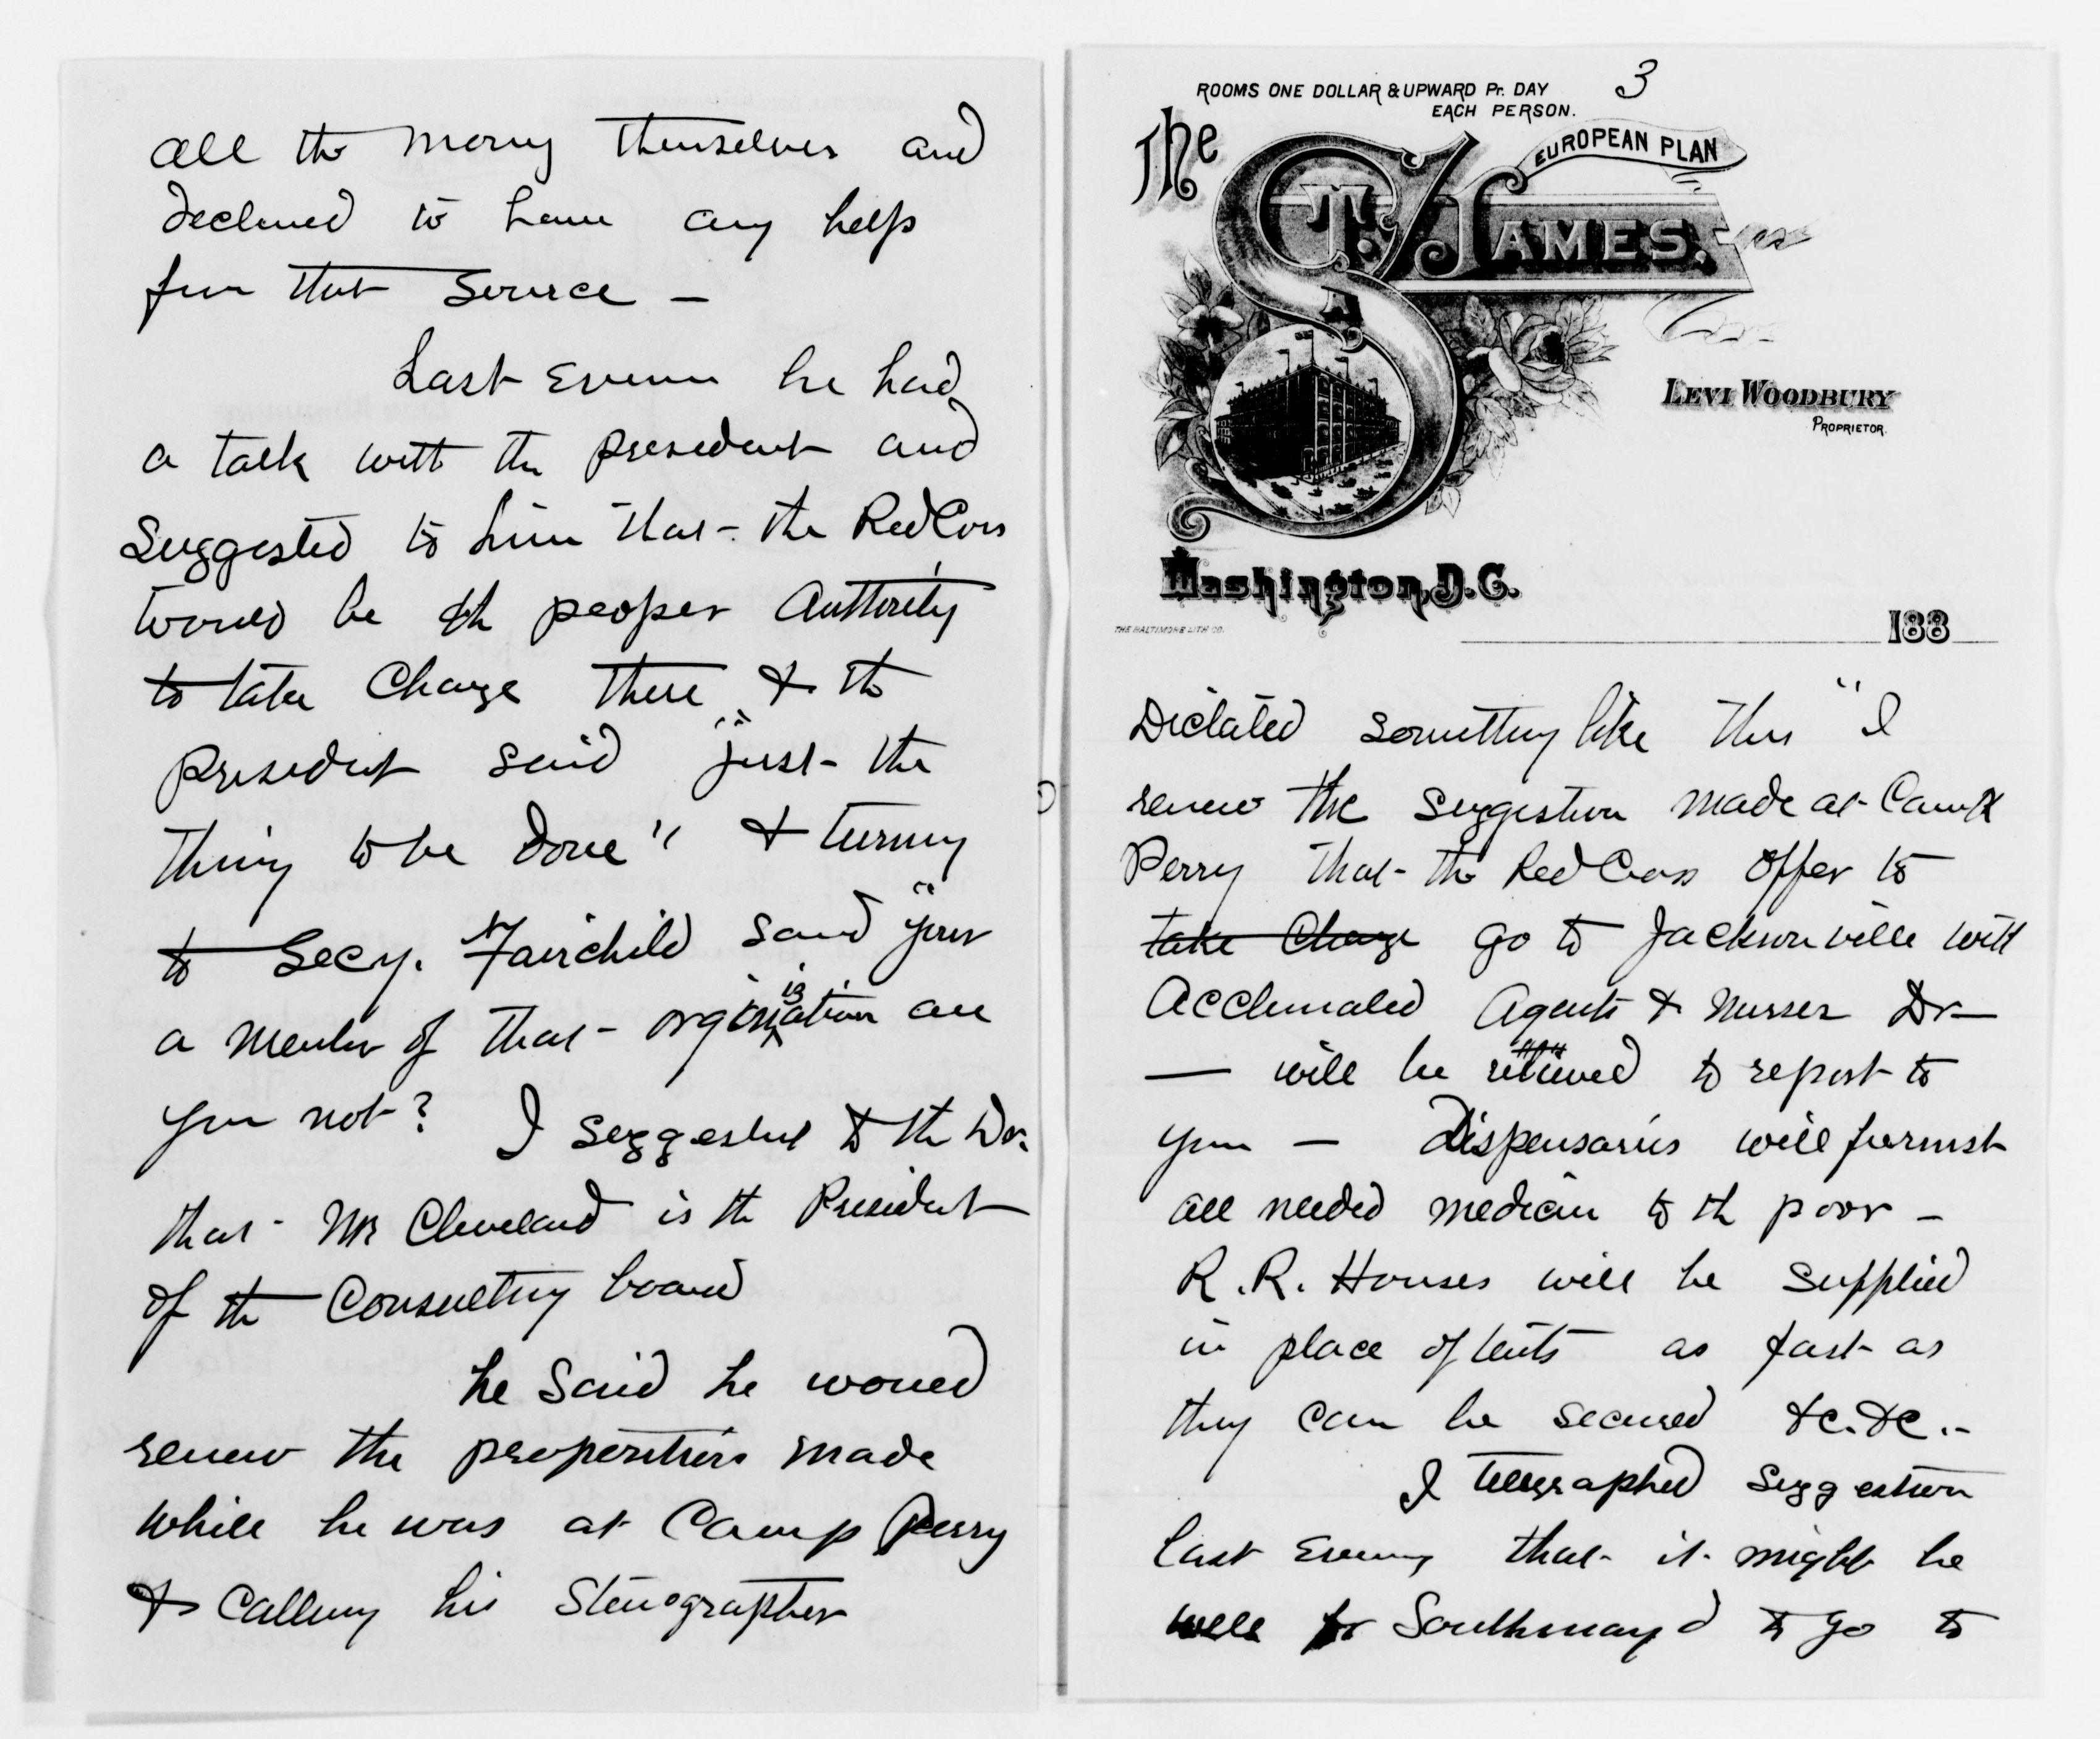 all the money themselves and
declined to have any help
from that source —
Last Evening he had
a talk with the president and
Suggested to him that - the Red Cross
would be the proper Authority
to take Charge there & the
President said "just - the
thing to be done" & turning
to Secy. Fairchild said "your
a member of that - organization are
you not? I suggested to the Dr.
that - Mr Cleveland is the President
of the Consulting board
he said he would
renew the propositions made
while he was at Camp Perry
& calling his Stenographer
3
ROOMS ONE DOLLAR & UPWARD Pr. DAY
EACH PERSON.
The
ST. JAMES.
EUROPEAN PLAN
LEVI WOODBURY
PROPRIETOR.
Washington, D.C.
THE BALTIMORE LITH CO.
188
Dictated something like this "I
renew the suggestion made at - Camp
Perry that - the Red Cross offer to
take Charge go to Jacksonville with
Acclimated Agents & Nurses Dr —
— will be relieved to report to
you — Dispensaries will furnish
all needed medicin to th poor —
R.R. Houses will be supplied
in place of tents as fast as
they can be secured &c. &c. -
I telegraphed suggestion
last Evening that - it - might be
well for Southmayd to go to